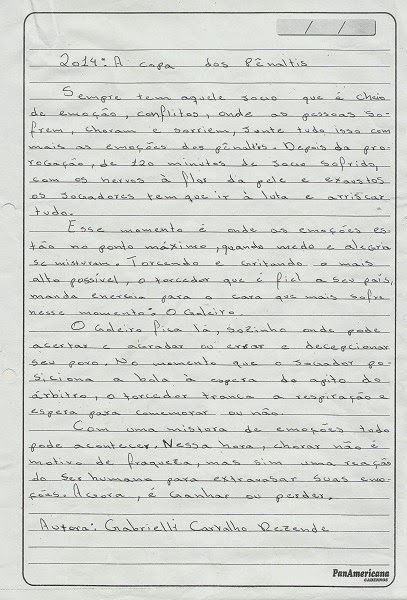 2014: A copa dos Pênaltis
Sempre tem aquele jogo que é cheio
de emoção, conflitos, onde as pessoas so-
frem, choram e sorriem, junte tudo isso com
mais as emoções dos pênaltis. Depois da pro-
rogação, de 120 minutos de jogo sofrido,
com os nervos à flor da pele e exaustos
os jogadores tem que ir à luta e arriscar
tudo.
Esse momento é onde as emoções es-
tão no ponto máximo, quando medo e alegria
se misturam. Torcendo e gritando o mais
alto possível, o torcedor que é fiel a seu país,
manda energia para o cara que mais sofre
nesse momento: O Goleiro.
O Goleiro fica lá, sozinho onde pode
acertar e agradar ou errar e decepcionar
seu povo. No momento que o jogador po-
siciona a bola à espera do apito do
árbitro, o torcedor tranca a respiração e
espera para comemorar ou não.
Com uma mistura de emoções tudo
pode acontecer. Nessa hora, chorar não é
motivo de fraqueza, mas sim uma reação
do ser humano para extravasar suas emo-
ções. Agora, é ganhar ou perder.
Autora: Gabrielli Carvalho Rezende
PanAmericana
CADERNOS